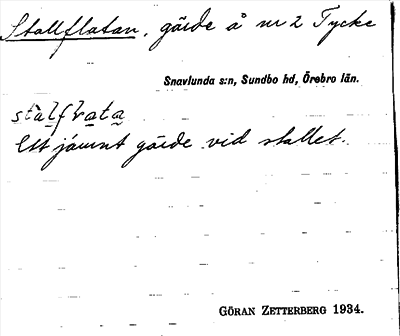 Stallflatan, gärde å nr 2 Tycke
Snavlunda s:n, Sundbo hd, Örebro län.
stàlflata
Ett jämnt gärde vid stallet.
GÖRAN ZETTERBERG 1934.